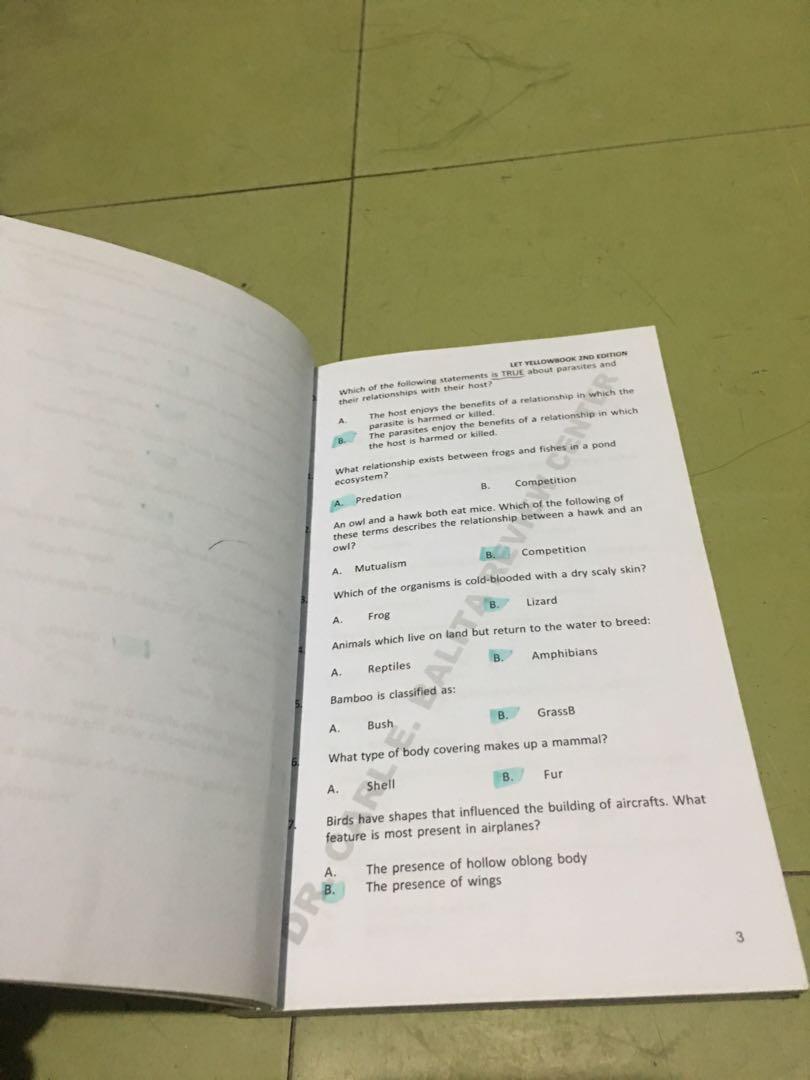 LET YELLOWBOOK 2ND EDITION
Which of the following statements is TRUE about parasites and
their relationships with their host?
A. The host enjoys the benefits of a relationship in which the
parasite is harmed or killed.
B. The parasites enjoy the benefits of a relationship in which
the host is harmed or killed.
What relationship exists between frogs and fishes in a pond
ecosystem?
A. Predation B. Competition
2. An owl and a hawk both eat mice. Which of the following of
these terms describes the relationship between a hawk and an
owl?
A. Mutualism B. Competition
3. Which of the organisms is cold-blooded with a dry scaly skin?
A. Frog B. Lizard
4. Animals which live on land but return to the water to breed:
A. Reptiles B. Amphibians
5. Bamboo is classified as:
A. Bush B. GrassB
6. What type of body covering makes up a mammal?
A. Shell B. Fur
7. Birds have shapes that influenced the building of aircrafts. What
feature is most present in airplanes?
A. The presence of hollow oblong body
B. The presence of wings
3
DR. CARL E. BALITA REVIEW CENTER